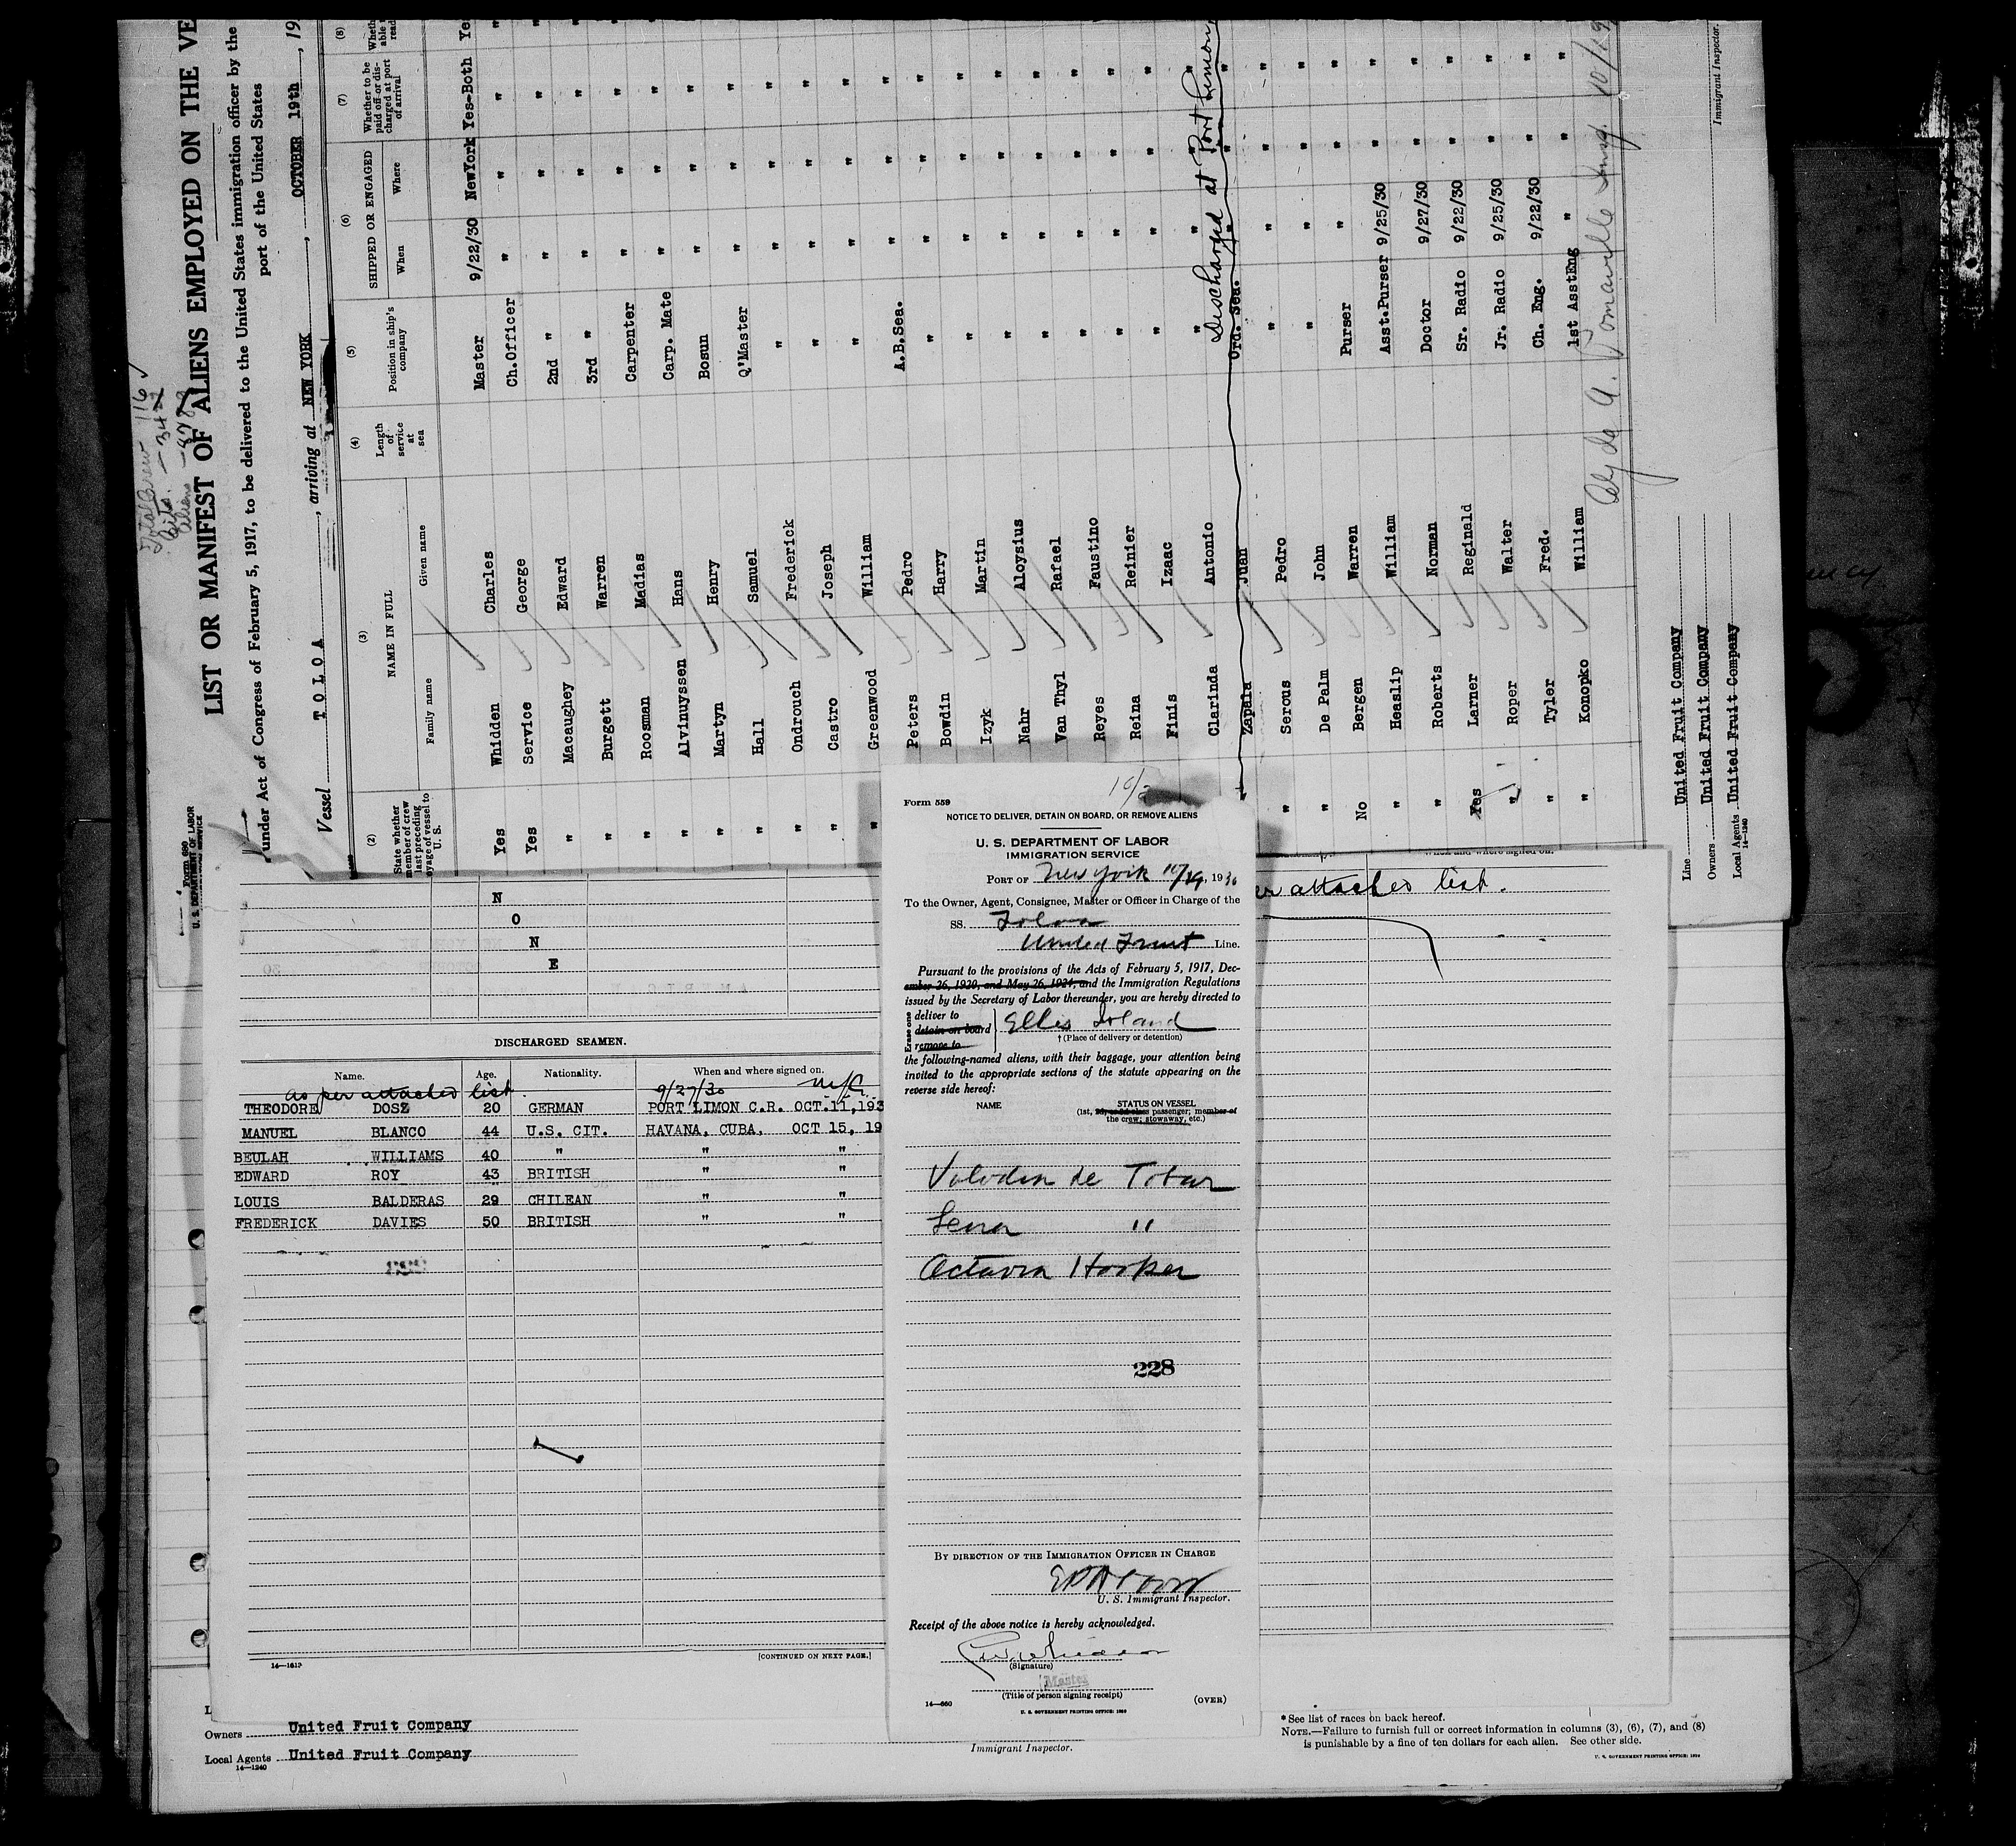 Total Crew 116 ✓
Aliens
LIST OR MANIFEST OF ALIENS EMPLOYED ON THE VE
under Act of Congress of February 5, 1917, to be delivered to the United States immigration officer by the
port of the United States
Vessel TOLOA, arriving at NEW YORK, OCTOBER 19th, 19
Form 680
U. S. DEPARTMENT OF LABOR
(2) (3) (4) (5) (6) (7) (8)
State whether member of crew last preceding voyage of vessel to U. S.
NAME IN FULL
Family name Given name
Length of service at sea
Position in ship's company
SHIPPED OR ENGAGED
When Where
Whether to be paid off or discharged at port of arrival
Yes Whidden Charles Master 9/22/30 NewYork Yes-Both Yes
Yes Service George Ch.Officer " " " "
" Macaughey Edward 2nd " " " " "
" Burgett Warren 3rd " " " " "
" Roosman Madias Carpenter " " " "
" Alvinuyssen Hans Carp. Mate " " " "
" Martyn Henry Bosun " " " "
" Hall Samuel Q'Master " " " "
" Ondrouch Frederick " " " " "
" Castro Joseph " " " " "
" Greenwood William " " " " "
Peters Pedro A.B.Sea. " " " "
Bowdin Harry " " " " "
Izyk Martin " " " " "
Nahr Aloysius " " " " "
Van Thyl Rafael " " " " "
Reyes Faustino " " " " "
Reina Reinier " " " " "
Finis Izaac " " " " "
Clarinda Antonio " " " " "
Discharged at Port Limon
Zapala Juan Ord. Sea. " " " "
" Serous Pedro " " " " "
" De Palm John " " " " "
No Bergen Warren Purser " " " "
" Heaslip William Asst.Purser 9/25/30 " " "
" Roberts Norman Doctor 9/27/30 " " "
Yes Larner Reginald Sr. Radio 9/22/30 " " "
" Roper Walter Jr. Radio 9/25/30 " " "
" Tyler Fred. Ch. Eng. 9/22/30 " " "
" Konopko William 1st AsstEng " " " "
10/19
Immigrant Inspector.
Line United Fruit Company
Owners United Fruit Company
Local Agents United Fruit Company
14—1240
N
O
N
E
DISCHARGED SEAMEN.
Name. Age. Nationality. When and where signed on.
as per attached list 9/27/30 N/C.
THEODORE DOSZ 20 GERMAN PORT LIMON C.R. OCT.11,193
MANUEL BLANCO 44 U.S. CIT. HAVANA, CUBA, OCT 15, 19
BEULAH WILLIAMS 40 " " "
EDWARD ROY 43 BRITISH " "
LOUIS BALDERAS 29 CHILEAN " "
FREDERICK DAVIES 50 BRITISH " "
14—1613
[CONTINUED ON NEXT PAGE.]
When and where signed on.
er attached list.
Form 559
NOTICE TO DELIVER, DETAIN ON BOARD, OR REMOVE ALIENS
U. S. DEPARTMENT OF LABOR
IMMIGRATION SERVICE
PORT OF New York 10/19, 1930
To the Owner, Agent, Consignee, Master or Officer in Charge of the
SS. Toloa
United Fruit Line.
Pursuant to the provisions of the Acts of February 5, 1917, Dec-
ember 26, 1920, and May 26, 1924, and the Immigration Regulations
issued by the Secretary of Labor thereunder, you are hereby directed to
Erase one
deliver to
detain on board
remove to
Ellis Island
† (Place of delivery or detention)
the following-named aliens, with their baggage, your attention being
invited to the appropriate sections of the statute appearing on the
reverse side hereof:
NAME STATUS ON VESSEL
(1st, 2d, or 3d class passenger; member of
the crew; stowaway, etc.)
de Tobar
"
Octavia Hooker
228
BY DIRECTION OF THE IMMIGRATION OFFICER IN CHARGE
U. S. Immigrant Inspector.
Receipt of the above notice is hereby acknowledged.
(Signature)
Master
(Title of person signing receipt)
14—660
(OVER)
U. S. GOVERNMENT PRINTING OFFICE: 1930
Owners United Fruit Company
Local Agents United Fruit Company
14—1240
Immigrant Inspector.
* See list of races on back hereof.
NOTE.—Failure to furnish full or correct information in columns (3), (6), (7), and (8)
is punishable by a fine of ten dollars for each alien. See other side.
U. S. GOVERNMENT PRINTING OFFICE: 1929